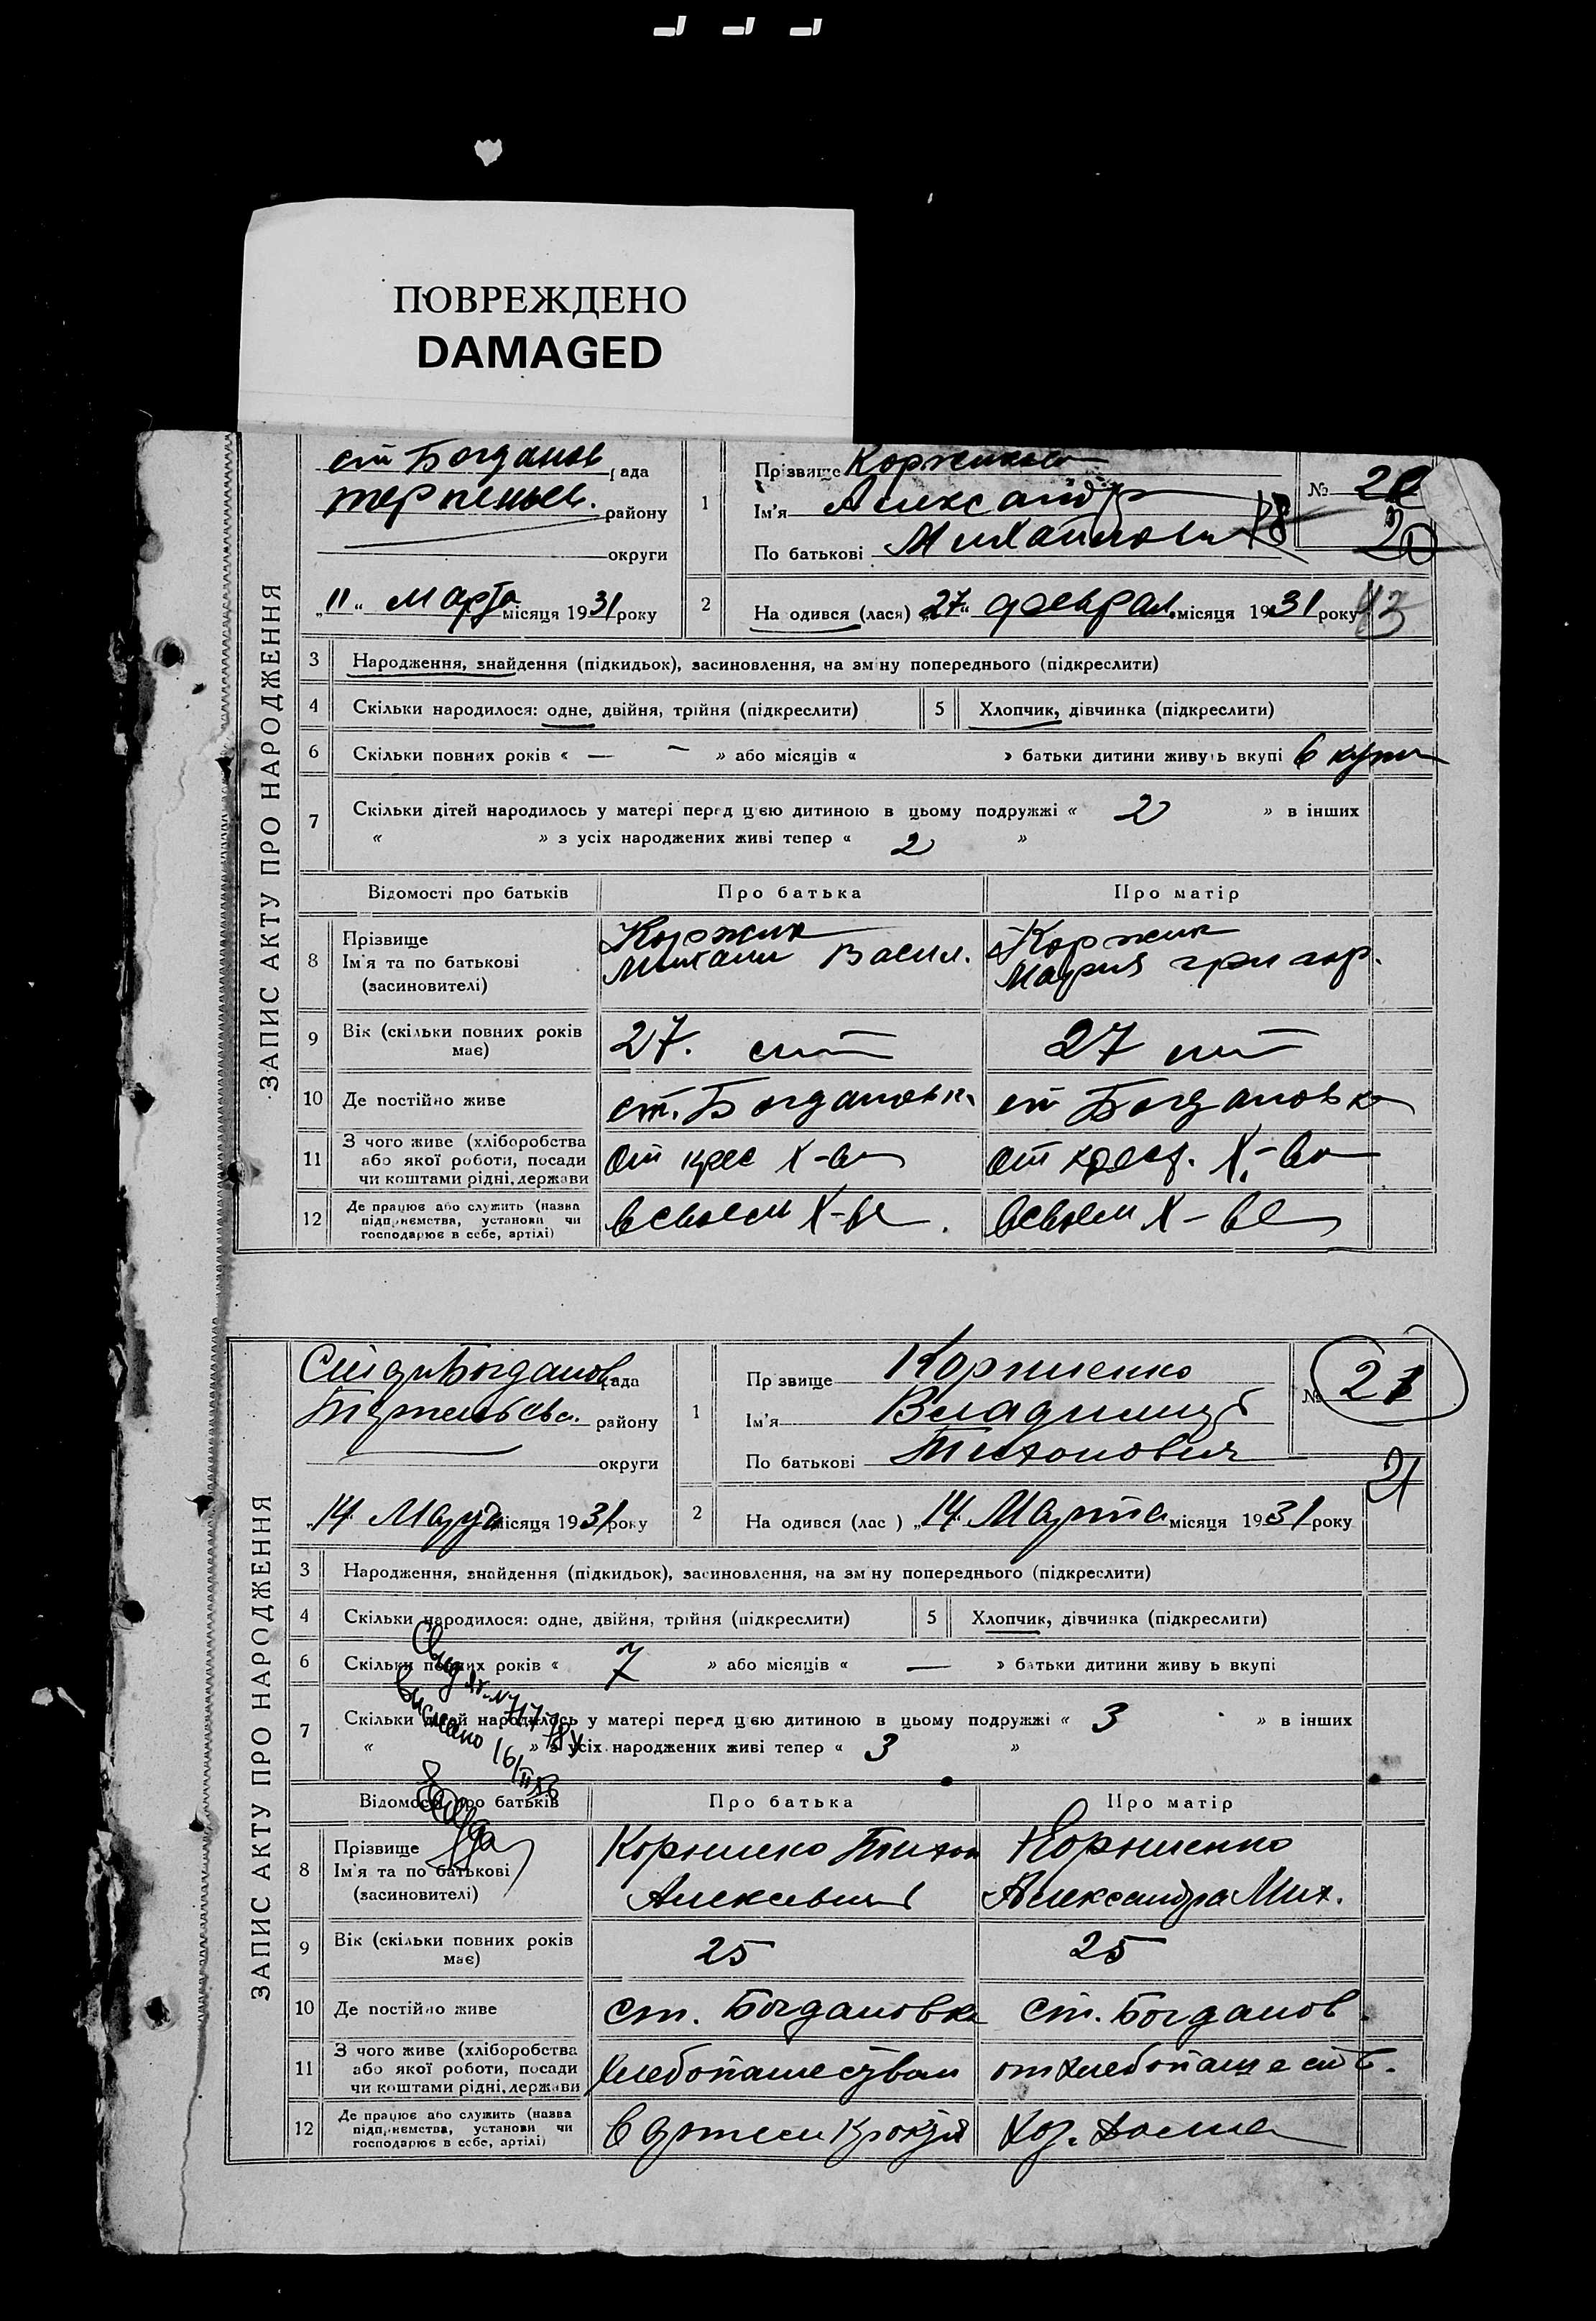 ПОВРЕЖДЕНО
DAMAGED
ЗАПИС АКТУ ПРО НАРОДЖЕННЯ
ст Богданов рада
району
округи
„11“ Марта місяця 1931 року
1
Прізвище
Ім'я Александр
По батькові
№ 20
2
На одився (лася) „27“ феврал. місяця 1931 року
43
3 Народження, знайдення (підкидьок), засиновлення, на зміну попереднього (підкреслити)
4 Скільки народилося: одне, двійня, трійня (підкреслити) 5 Хлопчик, дівчинка (підкреслити)
6 Скільки повних років « — » або місяців « » батьки дитини живуть вкупі
7 Скільки дітей народилось у матері перед цією дитиною в цьому подружжі « 2 » в інших
« » з усіх народжених живі тепер « 2 »
Відомості про батьків Про батька Про матір
8 Прізвище Коржик Коржик
Ім'я та по батькові Михаил Васил. Мария Григор.
(засиновителі)
9 Вік (скільки повних років має) 27. лет 27 лет
10 Де постійно живе ст. Богдановка ст Богдановка
11 З чого живе (хліборобства або якої роботи, посади чи коштами рідні, держави от крес х-ва от крест. х-ва
12 Де працює або служить (назва підприємства, установи чи господарює в себе, артілі) в своем х-ве. в своем х-ве
ЗАПИС АКТУ ПРО НАРОДЖЕННЯ
рада
району
округи
„14. Марта місяця 1931 року
1
Прізвище Корниенко
Ім'я Владимир
По батькові Тихонович
№ 21
21
2
На одився (лас ) „14. Марта місяця 1931 року
3 Народження, знайдення (підкидьок), засиновлення, на зміну попереднього (підкреслити)
4 Скільки народилося: одне, двійня, трійня (підкреслити) 5 Хлопчик, дівчинка (підкреслити)
6 Скільки повних років « 7 » або місяців « — » батьки дитини живу ь вкупі
7 Скільки дітей народилось у матері перед цією дитиною в цьому подружжі « 3 » в інших
« » з усіх народжених живі тепер « 3 »
Відомості про батьків Про батька Про матір
8 Прізвище Корниенко Тихон Корниенко
Ім'я та по батькові Алексевич Александра Мих.
(засиновителі)
9 Вік (скільки повних років має) 25 25
10 Де постійно живе ст. Богдановка ст. Богданов.
11 З чого живе (хліборобства або якої роботи, посади чи коштами рідні, держави от хлебопашеств.
12 Де працює або служить (назва підприємства, установи чи господарює в себе, артілі) в артели